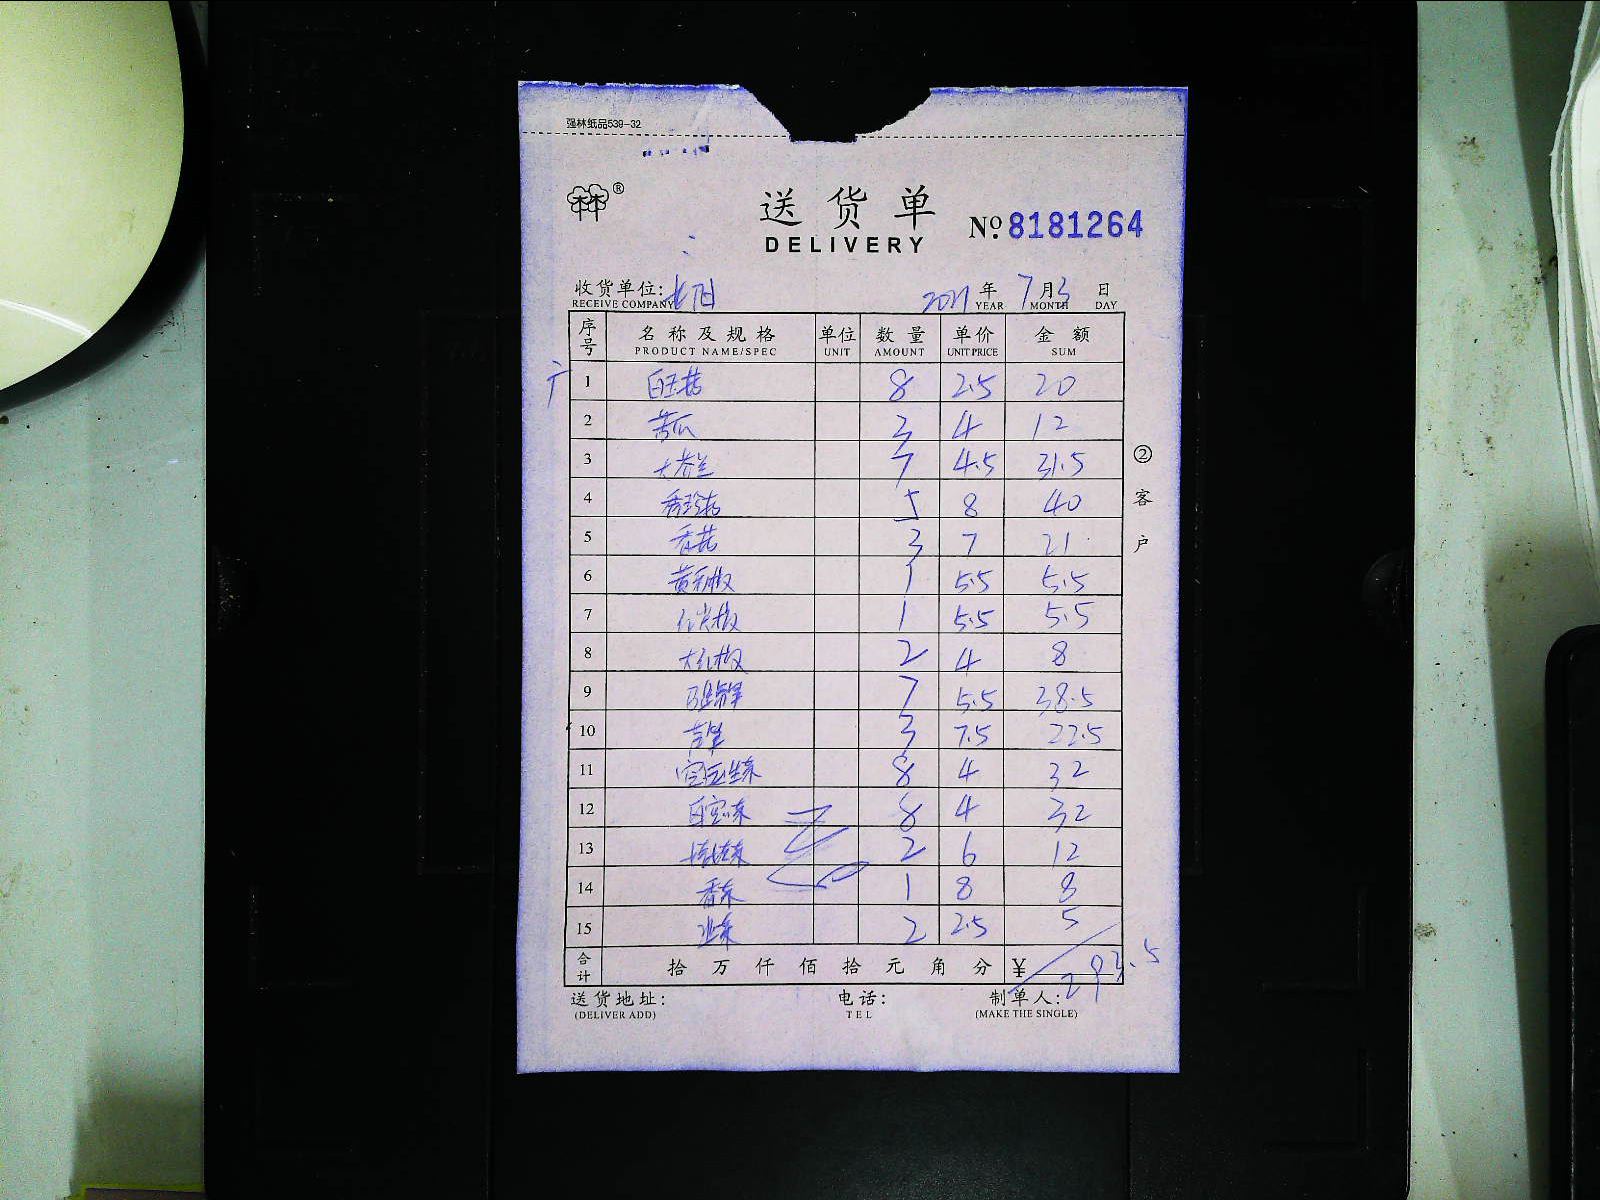 强林纸品539-32
林林®
送货单
DELIVERY
No. 8181264
收货单位:
RECEIVE COMPANY
2021 年 7 月 3 日
YEAR MONTH DAY
序号 名称及规格 单位 数量 单价 金额
PRODUCT NAME/SPEC UNIT AMOUNT UNIT PRICE SUM
1 白玉菇 8 2.5 20
2 苦瓜 3 4 12
3 7 4.5 31.5
4 秀珍菇 5 8 40
5 香菇 3 7 21
6 黄彩椒 1 5.5 5.5
7 1 5.5 5.5
8 大红椒 2 4 8
9 7 5.5 38.5
10 3 7.5 22.5
11 8 4 32
12 8 4 32
13 2 6 12
14 香菜 1 8 8
15 2 2.5 5
合计 拾 万 仟 佰 拾 元 角 分 ¥ 293.5
送货地址: 电话: 制单人:
(DELIVER ADD) TEL (MAKE THE SINGLE)
②客户